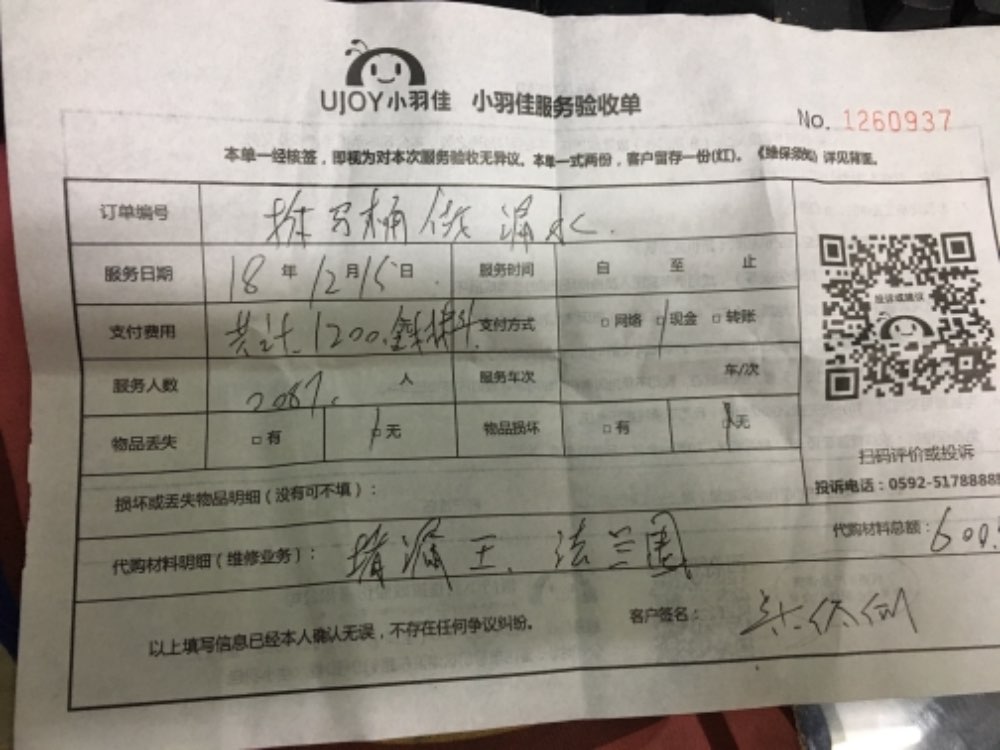 UJOY小羽佳 小羽佳服务验收单
No. 1260937
本单一经核签，即视为对本次服务验收无异议。本单一式两份，客户留存一份(红)。《维保须知》详见背面。
订单编号 漏水.
服务日期 18年12月15日 服务时间 自 至 止
支付费用 共计1200. 支付方式 □网络 □现金 □转账
服务人数 人 服务车次 车/次
物品丢失 □有 □无 物品损坏 □有 □无
投诉或建议
扫码评价或投诉
投诉电话：0592-5178888
损坏或丢失物品明细（没有可不填）：
代购材料明细（维修业务）： 堵漏王、法兰圈 代购材料总额：600.
以上填写信息已经本人确认无误，不存在任何争议纠纷。 客户签名：